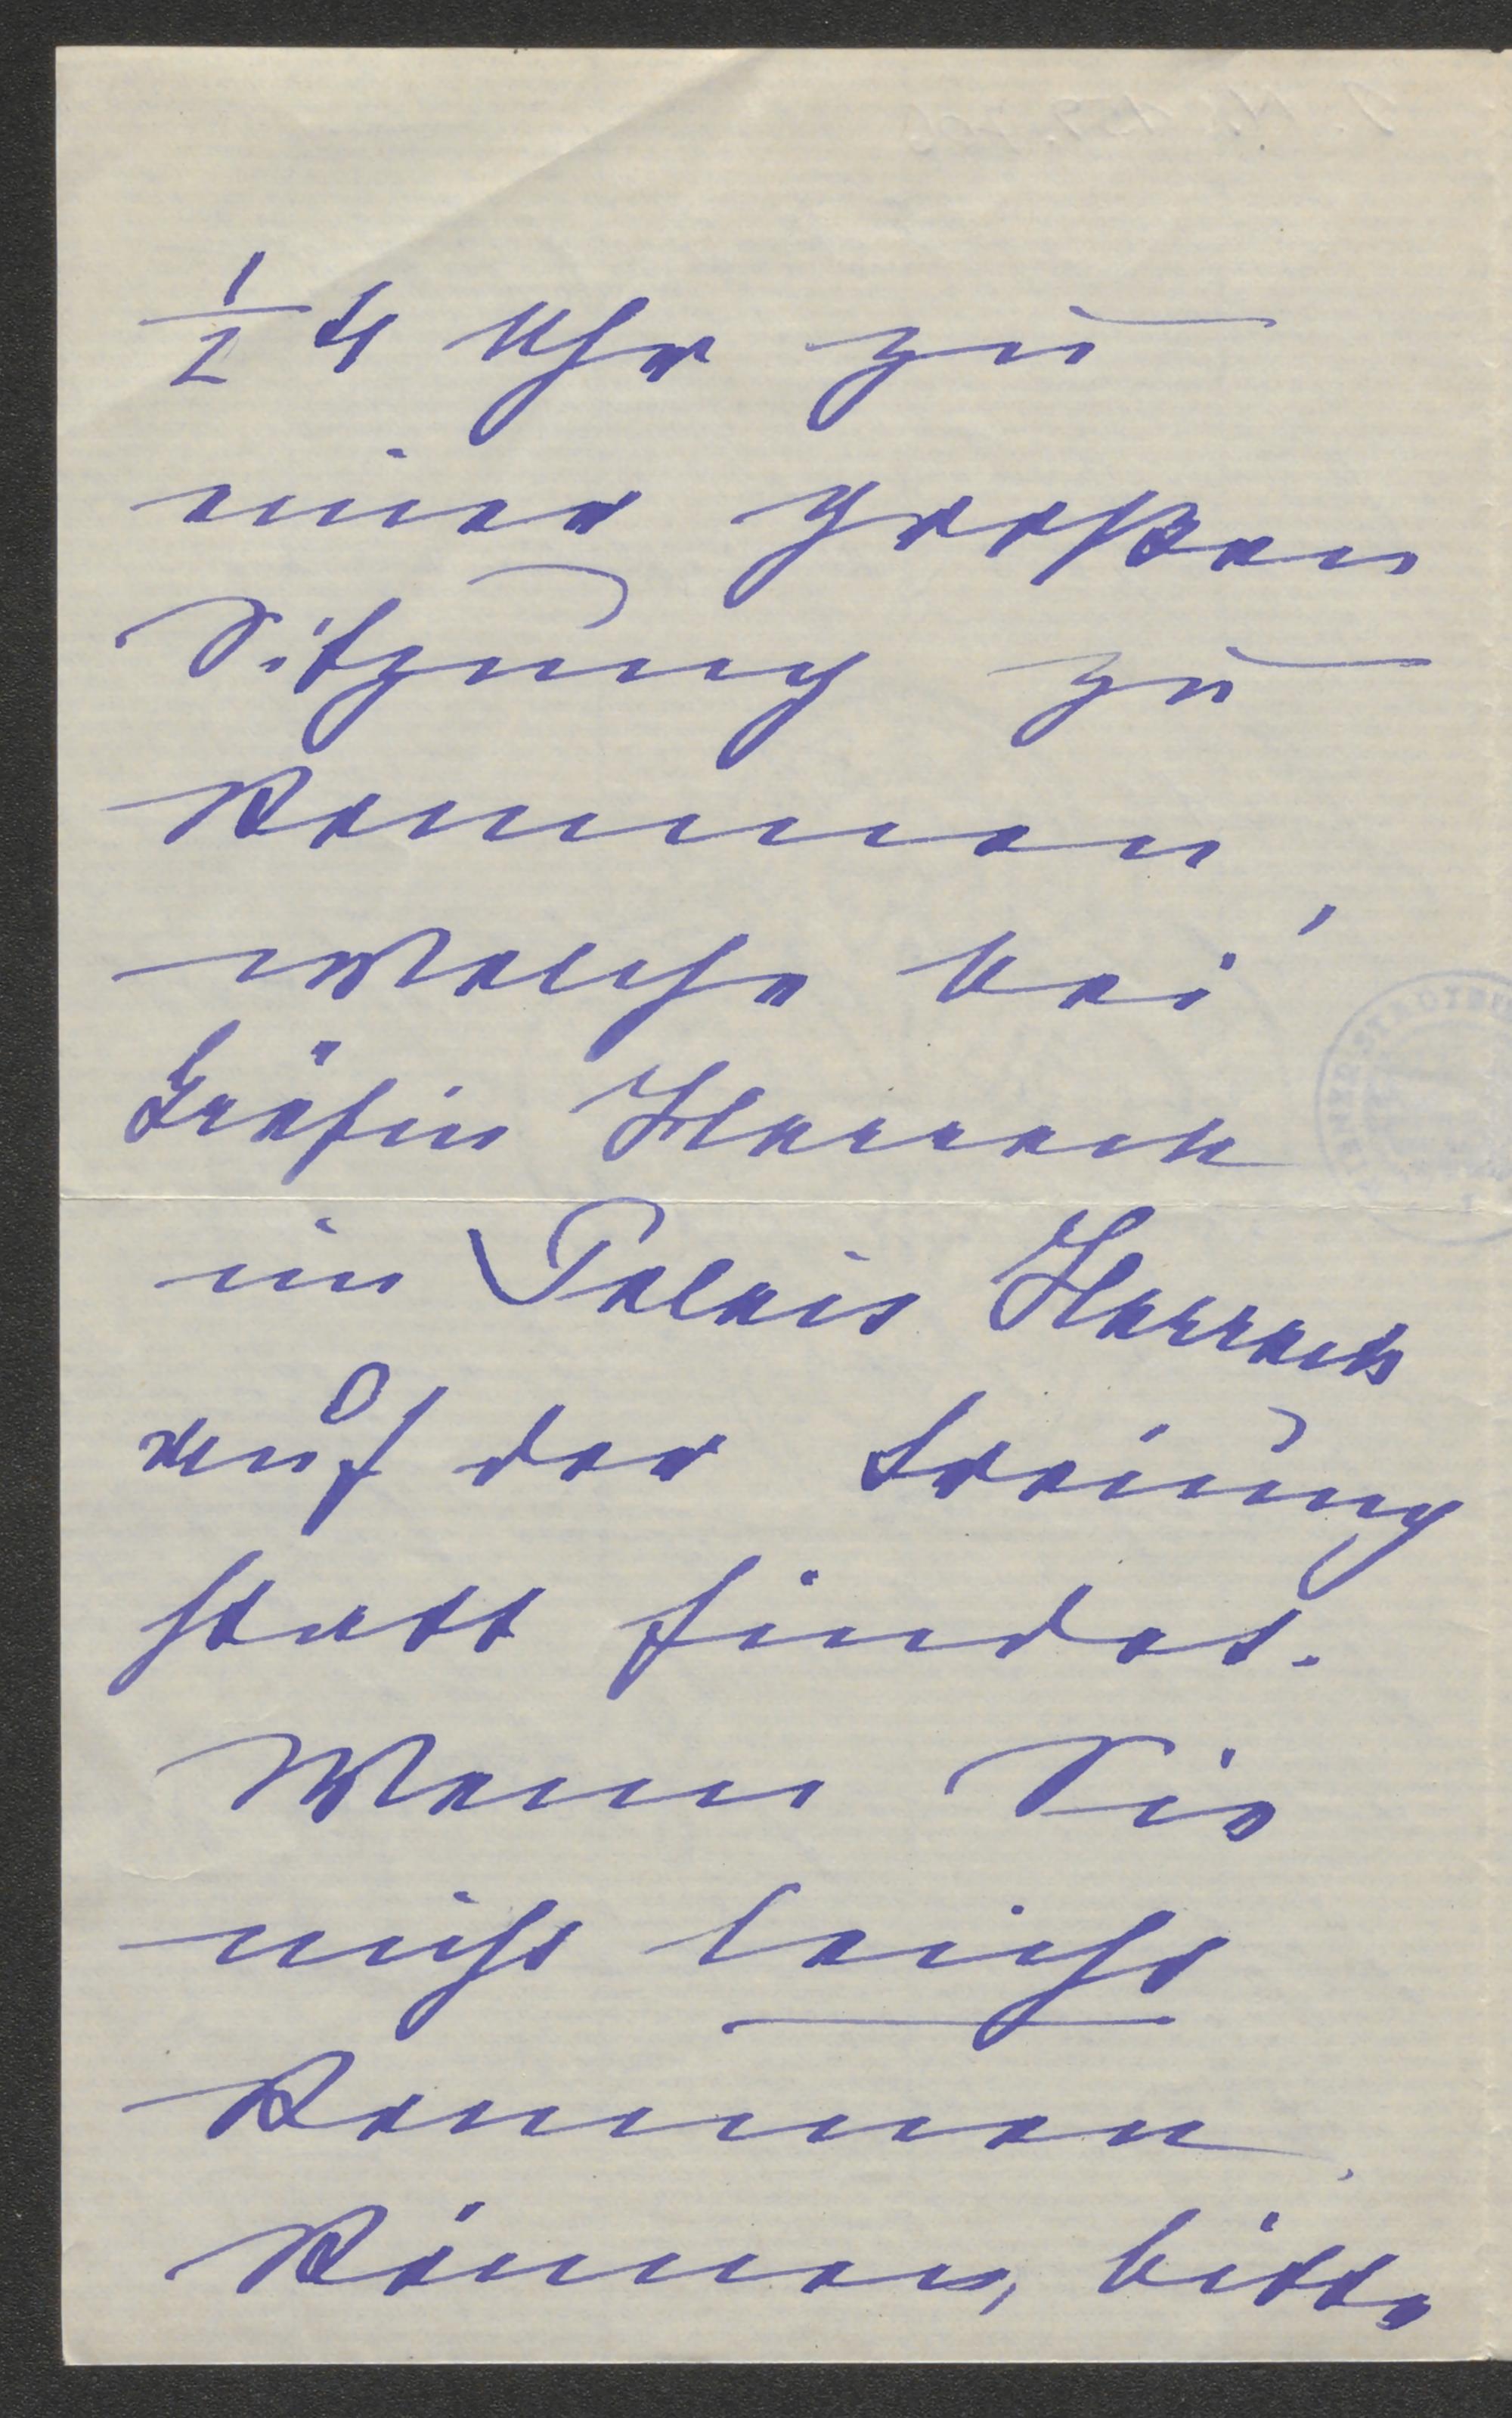 ½ 4 Uhr zu
einer großen
Sitzung zu
kommen,
welche bei
Gräfin Harrach
im Palais Harrach
auf der Freiung
statt findet.
Wenn Sie
nicht leicht
kommen
können, bitte